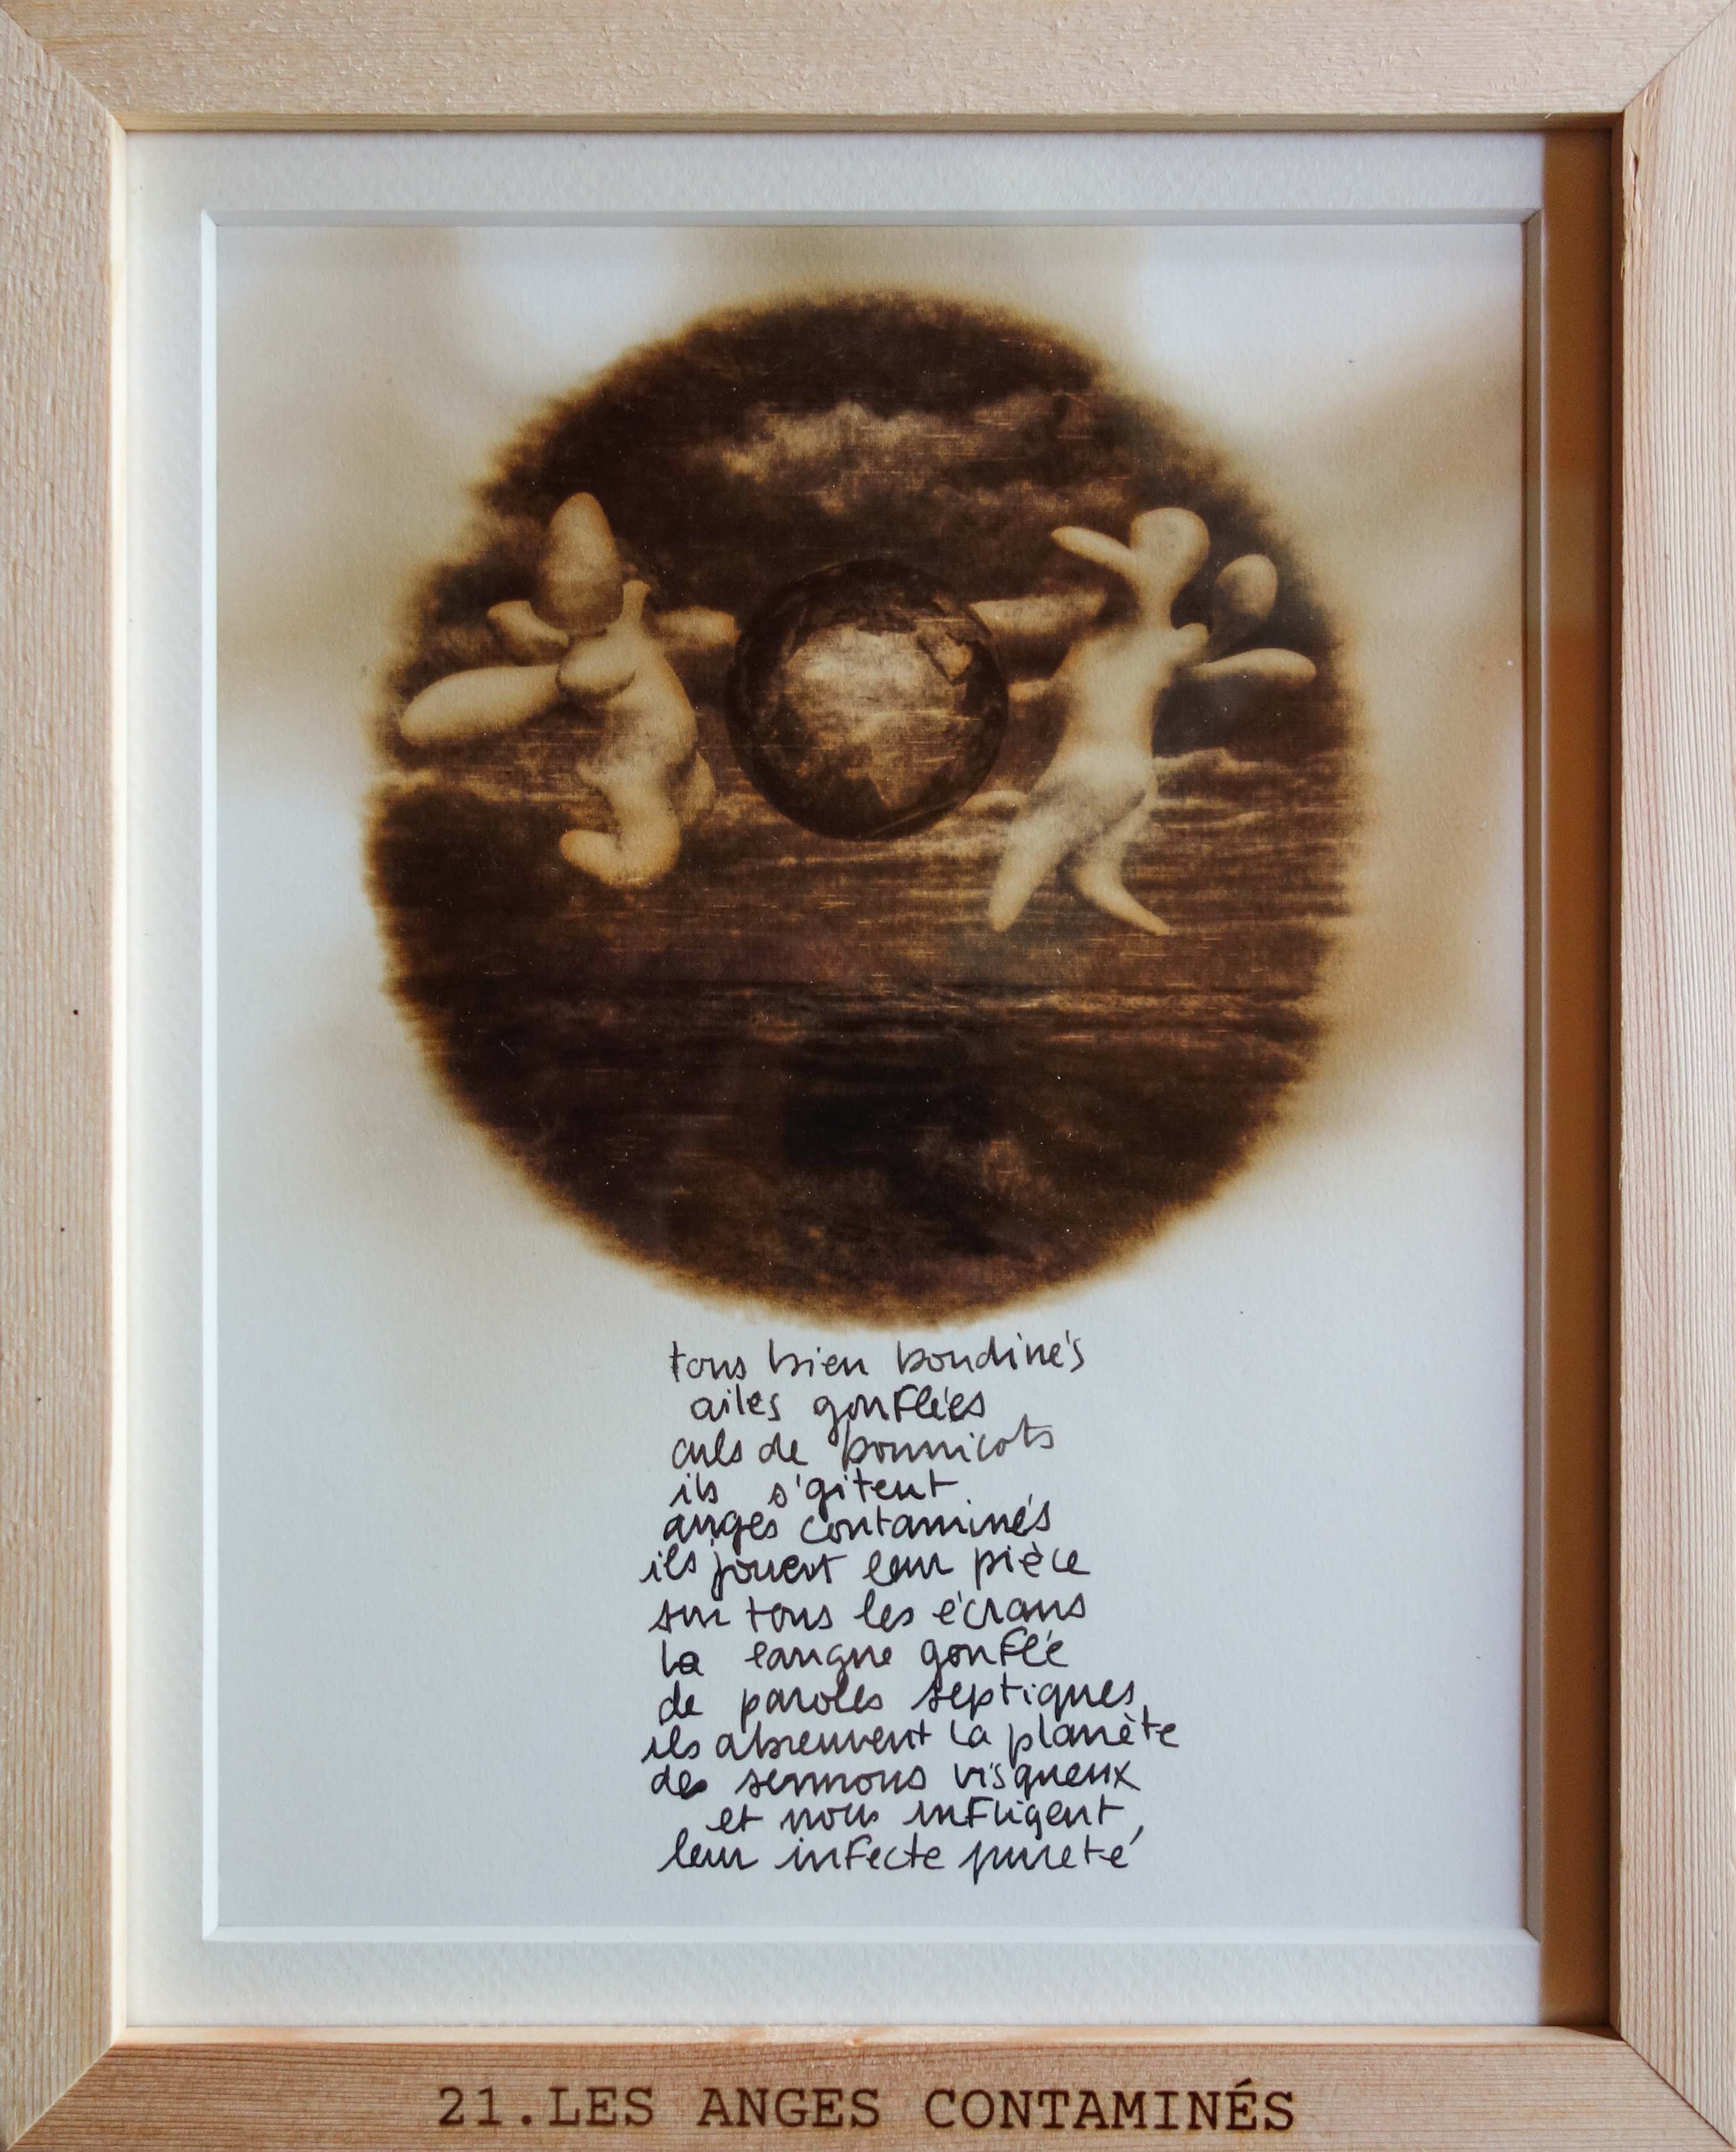 tous bien boudinés
ailes gonflées
culs de bourricots
ils s'gitent
anges contaminés
ils jouent leur pièce
sur tous les écrans
la langue gonflé
de paroles septiques
ils abreuvent la planète
de sermons visqueux
et nous infligent
leur infecte pureté
21.LES ANGES CONTAMINÉS